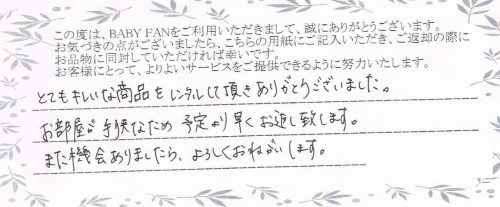 この度は、BABY FANをご利用いただきまして、誠にありがとうございます。
お気づきの点がございましたら、こちらの用紙にご記入いただき、ご返却の際に
お品物に同封していただければ幸いです。
お客様にとって、よりよいサービスをご提供できるように努力いたします。
とてもキレイな商品をレンタルして頂きありがとうございました。
お部屋が手狭なため予定より早くお返し致します。
また機会ありましたら、よろしくおねがいします。